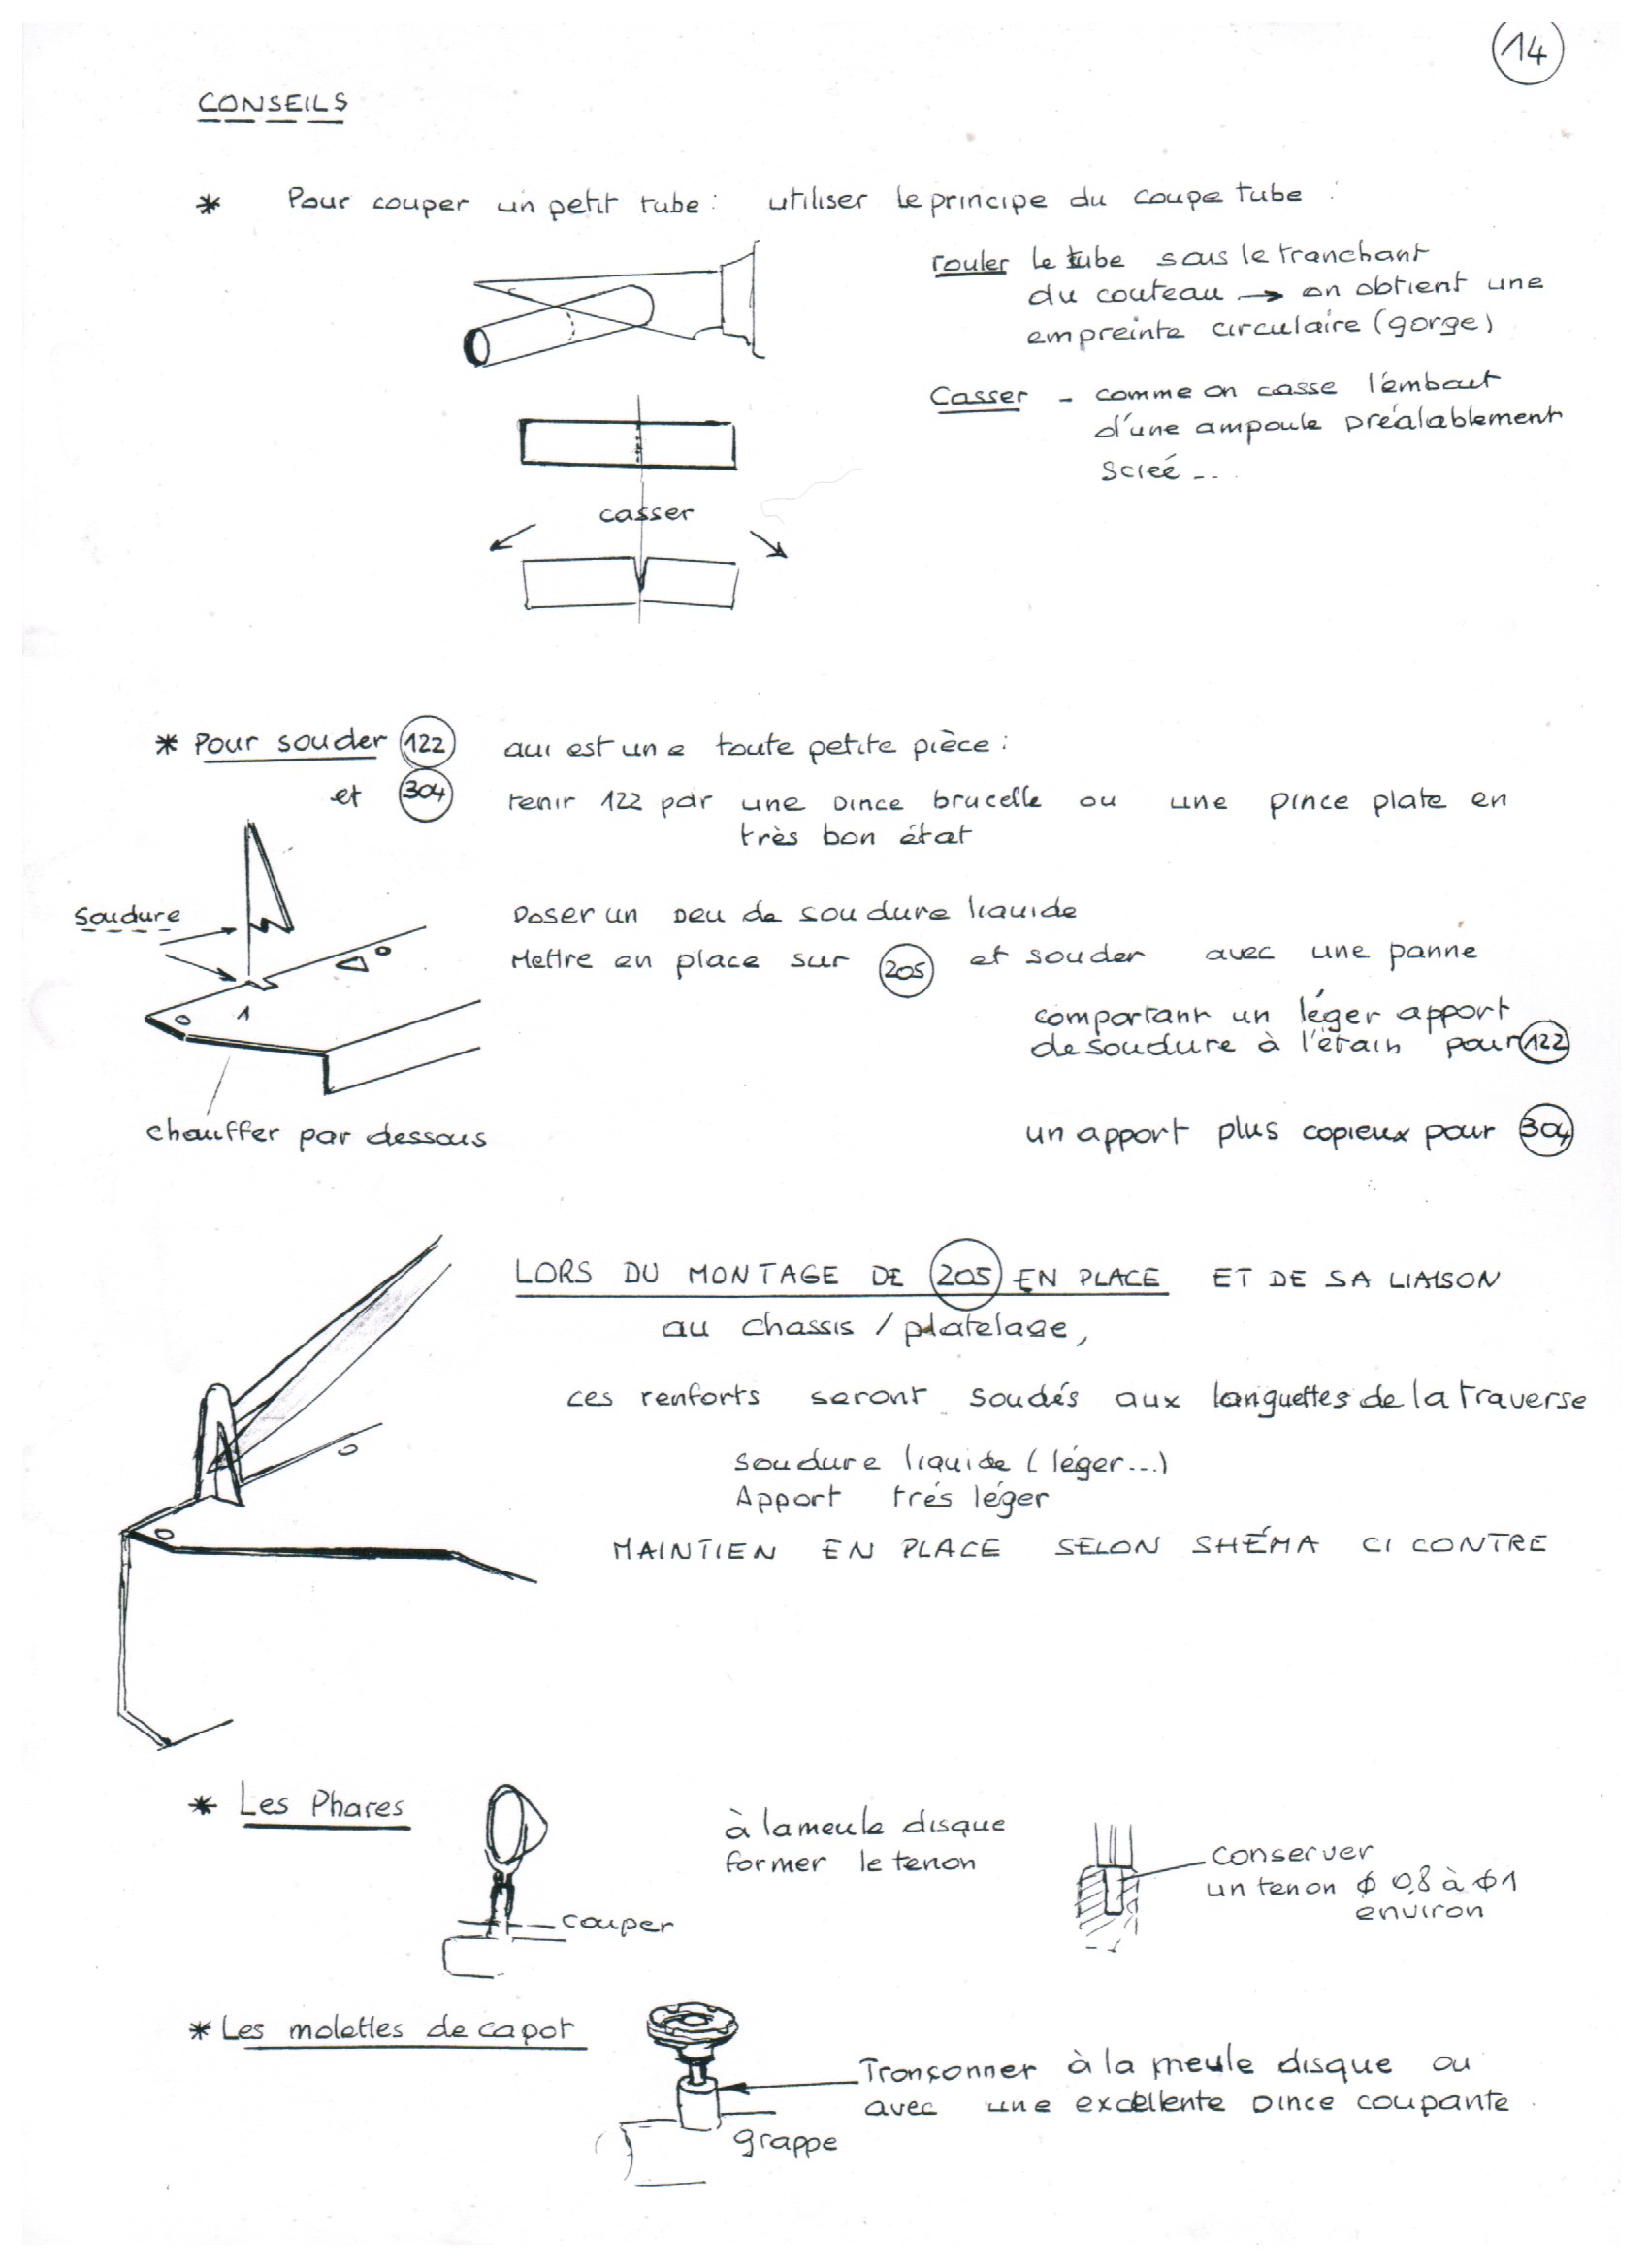 14
CONSEILS
* Pour couper un petit tube : utiliser le principe du coupe tube :
rouler le tube sous le tranchant
du couteau → on obtient une
empreinte circulaire (gorge)
Casser - comme on casse l'embout
d'une ampoule préalablement
sciée ...
casser
* Pour souder 122 qui est une toute petite pièce :
et 304 tenir 122 par une pince brucelle ou une pince plate en
très bon état
soudure
Poser un peu de soudure liquide
Mettre en place sur 205 et souder avec une panne
comportant un léger apport
de soudure à l'étain pour 122
1
chauffer par dessous
un apport plus copieux pour 304
LORS DU MONTAGE DE 205 EN PLACE ET DE SA LIAISON
au chassis / platelage,
ces renforts seront soudés aux languettes de la traverse
soudure liquide (léger...)
Apport trés léger
MAINTIEN EN PLACE SELON SHÉMA CI CONTRE
* Les Phares
à la meule disque
former le tenon
conserver
un tenon ϕ 0,8 à ϕ1
environ
couper
* Les molettes de capot
Tronçonner à la meule disque ou
avec une excellente pince coupante.
grappe